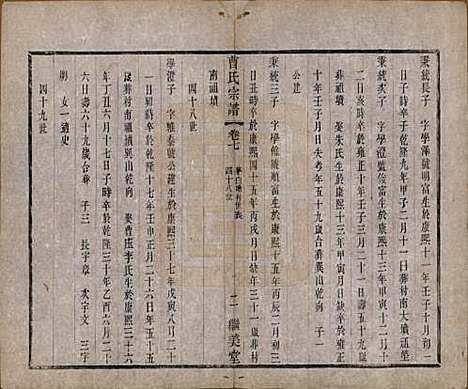 秉統長子　字學澤號明富生於康熙十一年壬子二月初
二日辰時卒於乾隆九年甲子二月十一日葬村南大墳
秉統次子　字學澄號俊富生於康熙十三年甲寅十二月十
二日亥時卒於雍正十年壬子三月二十四日壽五十九
葬祖墳　娶朱氏生於康熙十三年甲寅月日缺卒於雍正
十年壬子月日失考年五十九歲合葬巽山南向　子一
公建
秉統三子　字學儉號順富生於康熙十五年丙辰二月初三
日丑時卒於康熙三十五年丙子月日缺年二十一歲葬村
南祖墳
曹氏宗譜
卷七
四十八世
二
繼美堂
四十八世
學澄子　字雅泰號公建生於康熙三十七年戊寅八月二十
一日亥時卒於乾隆十七年壬申正月二十六日年五十五
歲葬村南祖墳巽山乾向　娶曹庄李氏生於康熙三十六
年丁丑六月十七日子時卒於乾隆三十年乙酉六月二十
六日壽六十九歲合葬　子三　長字章　次字文　三字
明　女一適史
四十九世